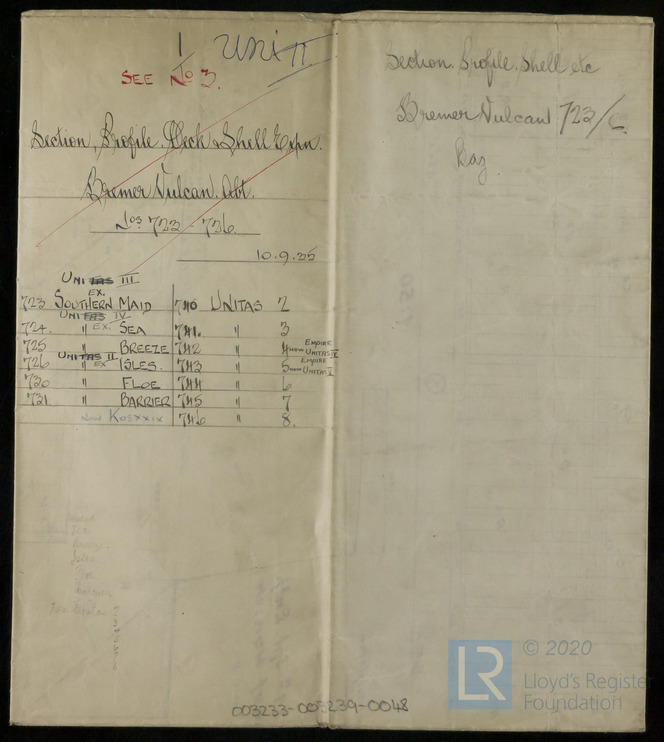 1 UNITT
SEE No 3.
Section, Profile, Deck & Shell Expn.
Bremer Vulcan. Abt.
Nos 723 - 726.
10.9.35
UNITAS III
EX.
723 SOUTHERN MAID 740 UNITAS 2
UNITAS IV
724. " EX. SEA 741. " 3
725 " BREEZE 742 " 4 now EMPIRE UNITAS IV
UNITAS II
726 " EX ISLES. 743 " 5 now EMPIRE UNITAS V
730 " FLOE 744 " 6
731 " BARRIER 745 " 7
now KOSXXIX 746 " 8.
Section. Profile. Shell etc
Bremer Vulcan 723/6
003233-003239-0048
LR
© 2020
Lloyd's Register
Foundation